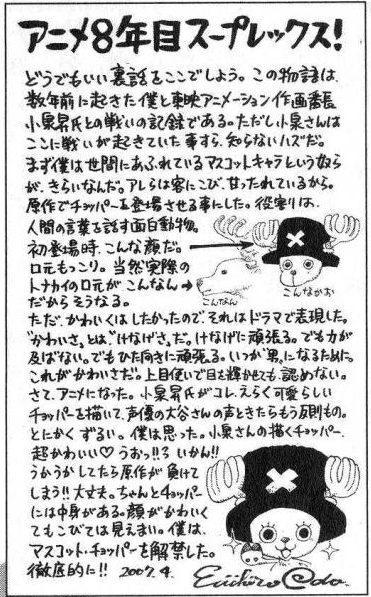 アニメ8年目スープレックス!
どうでもいい裏話をここでしよう。この物語は、
数年前に起きた僕と東映アニメーション作画番長
小泉昇氏との戦いの記録である。ただし小泉さんは
ここに戦いが起きていた事すら、知らないハズだ。
まず僕は世間にあふれているマスコットキャラという奴ら
が、きらいなんだ。アレらは客にこび、甘ったれているから。
原作でチョッパーを登場させる事にした。役割りは、
人間の言葉を話す面白動物。
初登場時、こんな顔だ。
口元もっこり。当然実際の
トナカイの口元が、こんなん→
だからそうなる。
こんなん
こんなかお
ただ、かわいくはしたかったので、それはドラマで表現した。
"かわいさ"とは、"けなげさ"だ。けなげに頑張る。でも力が
及ばない。でもひた向きに頑張る。いつか"男"になるために。
これがかわいさだ。上目使いで目を輝かせても、認めない。
さて、アニメになった。小泉昇氏がコレ、えらく可愛らしい
チョッパーを描いて、声優の大谷さんの声ときたらもう反則もの。
とにかくずるい。僕は思った。小泉さんの描くチョッパー、
超かわいい♡うおっ!!いかん!!
うかうかしてたら原作が負けて
しまう!!大丈夫。ちゃんとチョッパー
には中身がある。顔がかわいく
てもこびては見えまい。僕は、
マスコット・チョッパーを解禁した。
徹底的に!! 2007.4.
Eiichiro Oda